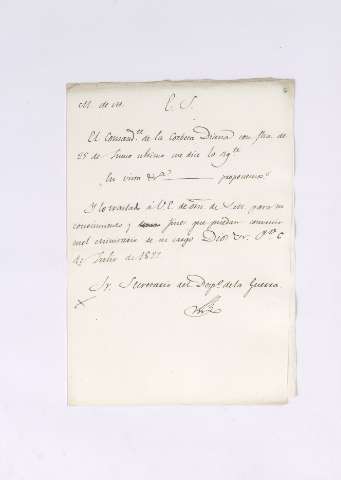 M. de M. E. S.
El Comand.te de la Corbeta Diana con fha. de
25 de Junio ultimo me dice lo sig.te
"En vista &.a propondría"
Y lo traslado á V.E. de orn. de para su
conocimiento y fines que puedan convenir
en el ministerio de su cargo Dios &c.
de Julio de 182
Sr. Secretario del Desp.o de la Guerra.